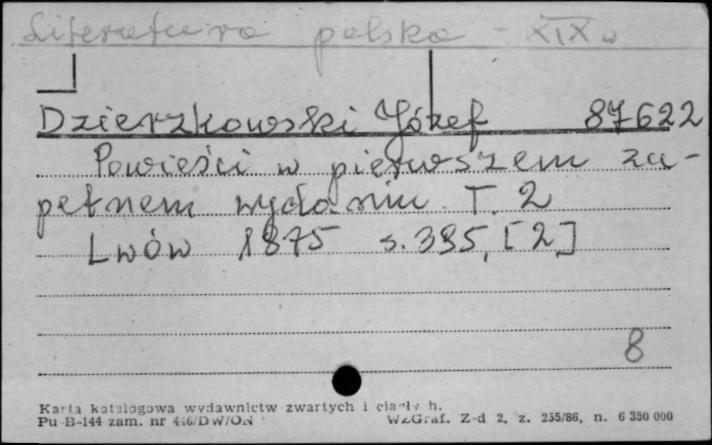 Literatura polska - XIX w
Dzierzkowski Józef 87622
Powieści w pierwszem zu-
pełnem wydaniu T. 2
Lwów 1875 s. 395, [2]
8
Karta katalogowa wydawnictw zwartych i ciągłych.
Pu-B-144 zam. nr 446/DW/ON WZGraf. Z-d 2, z. 255/86, n. 6 350 000